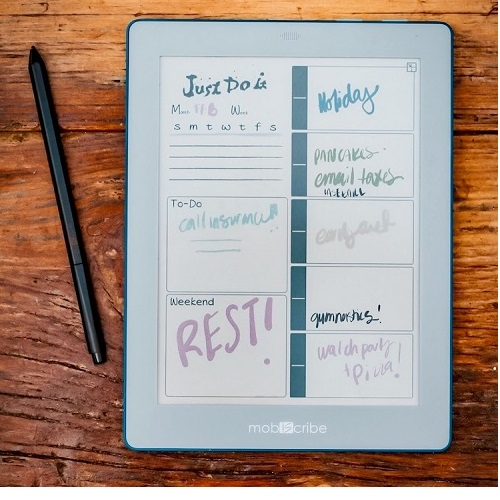 Just Do It
Month FEB Week
s m t w t f s
To-Do
call insurance!!
Weekend
REST!
Holiday
PANCAKES
email taxes
BASEBALL
early out
gymnastics!
watch party
+ Pizza!
mobiscribe